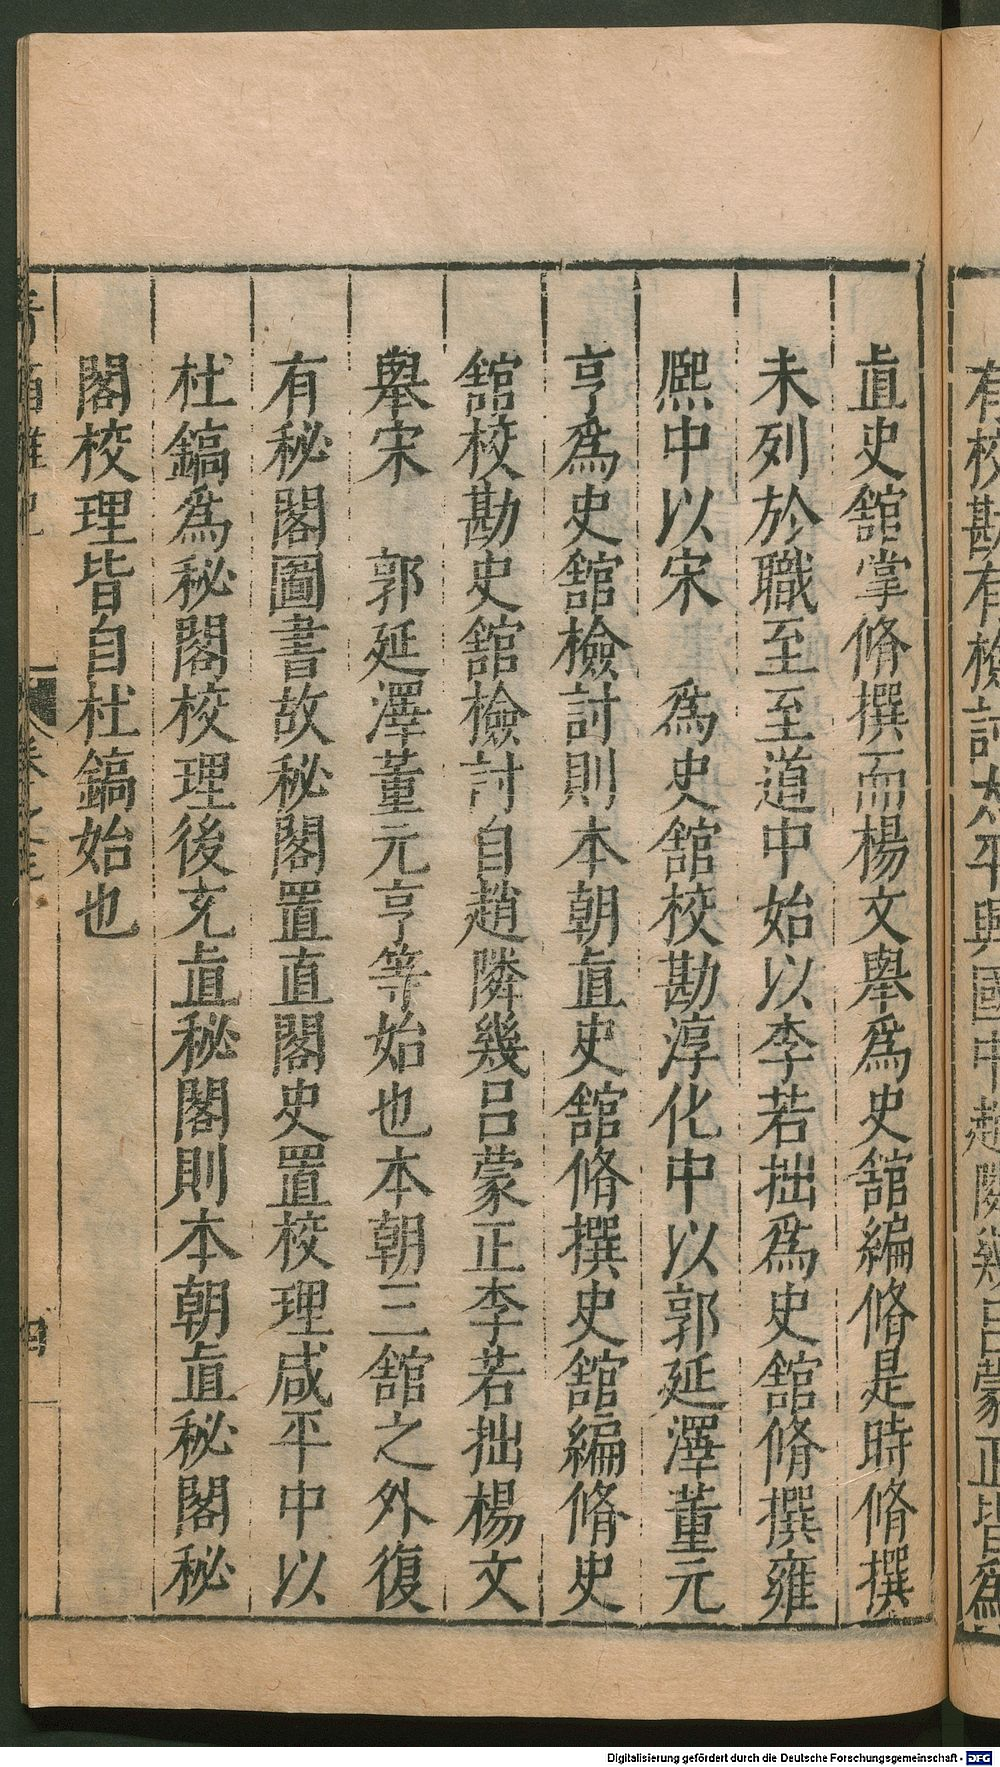 有校勘有檢討太平興國中趙隣幾呂蒙正皆爲
直史舘掌脩撰而楊文舉爲史舘編脩是時脩撰
未列於職至至道中始以李若拙爲史舘脩撰雍
熈中以宋　爲史舘校勘淳化中以郭延澤董元
亨爲史舘檢討則本朝直史舘脩撰史舘編脩史
舘校勘史舘檢討自趙隣幾呂蒙正李若拙楊文
舉宋　郭延澤董元亨等始也本朝三舘之外復
有秘閣圖書故秘閣置直閣史置校理咸平中以
杜鎬爲秘閣校理後充直秘閣則本朝直秘閣秘
閣校理皆自杜鎬始也
卷之 四
Digitalisierung gefördert durch die Deutsche Forschungsgemeinschaft - DFG